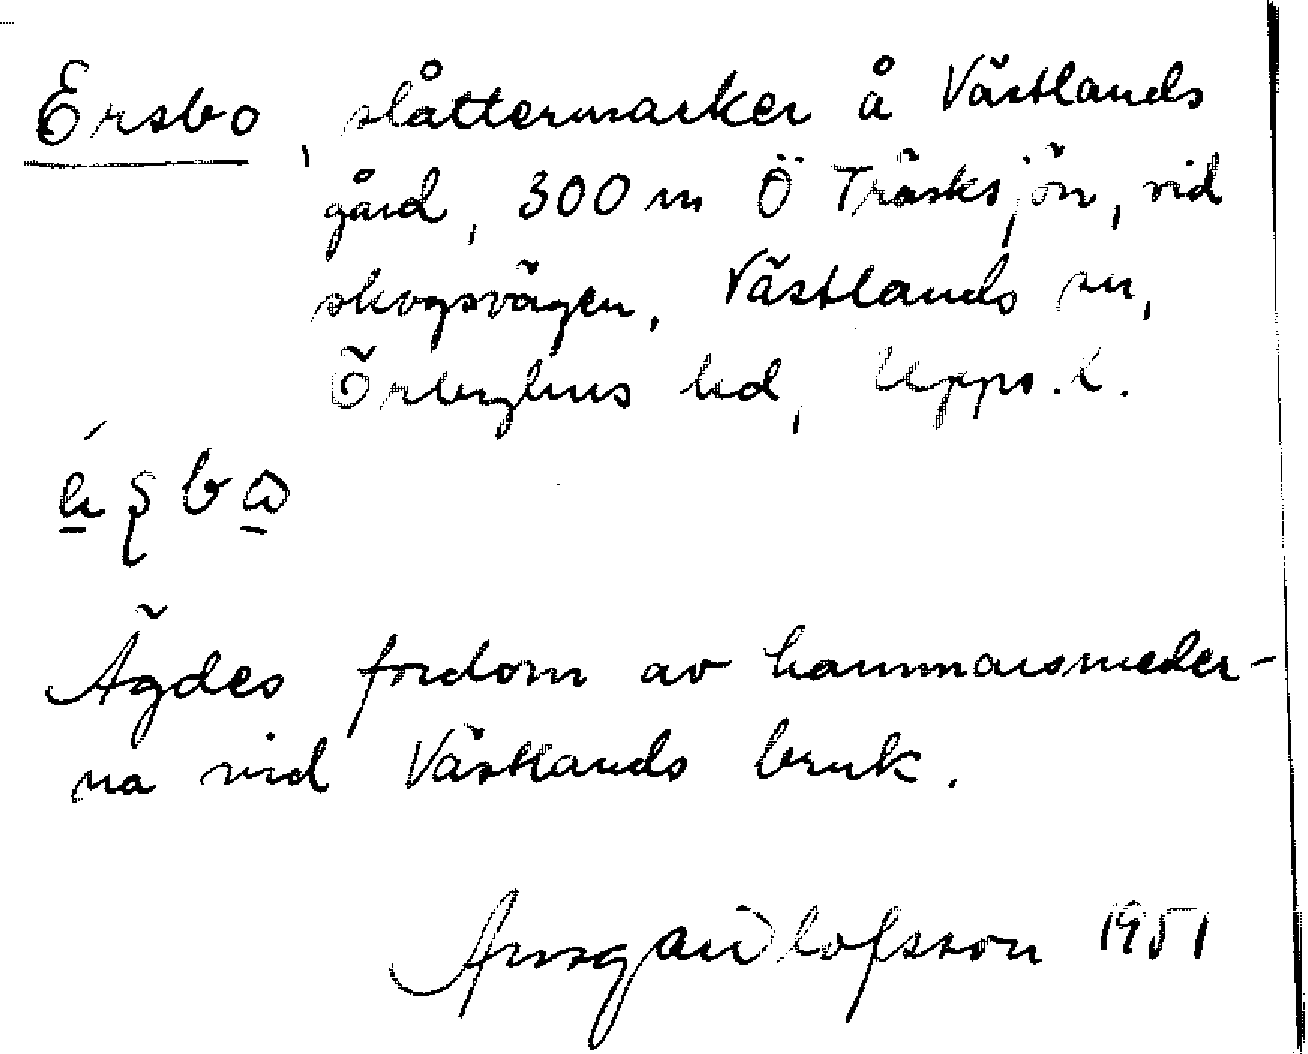 Ersbo, slåttermarker å Västlands
gård, 300 m Ö Träsksjön, vid
skogsvägen, Västlands sn,
Örbyhus hd, Upps. l.
Ägdes fordom av hammarsmeder-
na vid Västlands bruk.
Ansgar Olofsson 1951